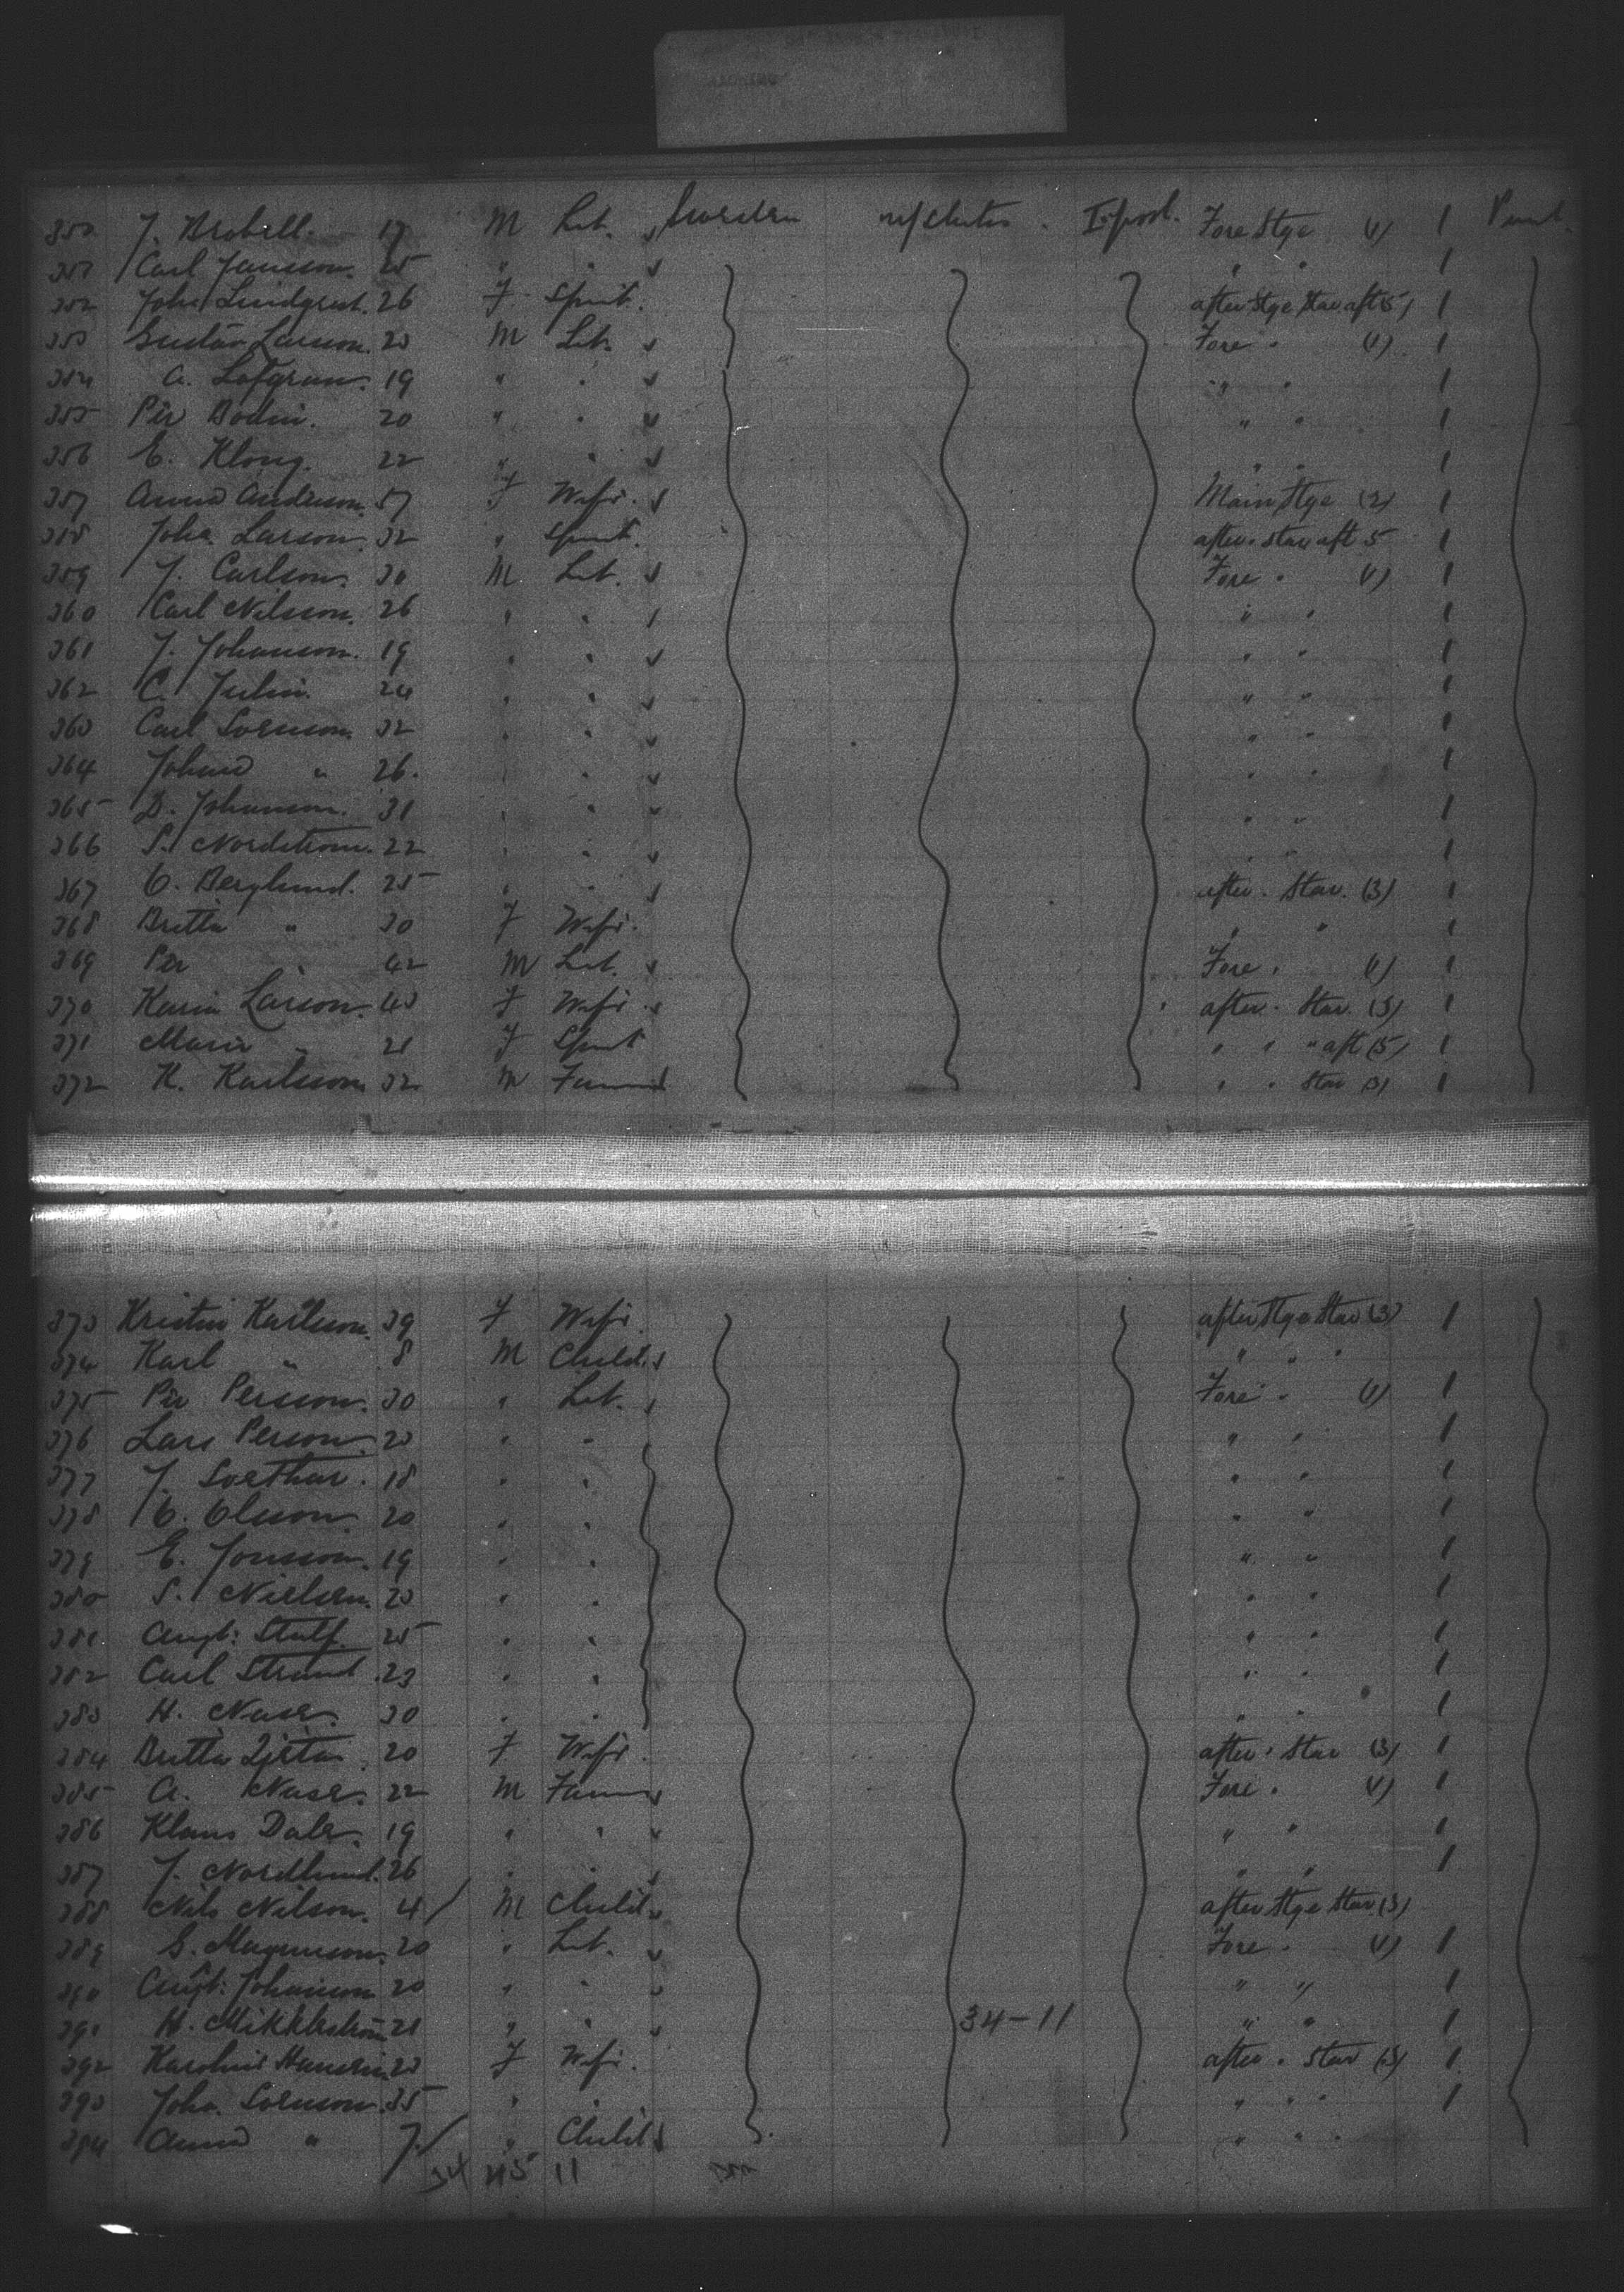 350 J. Brobell. 17 M Lab. Sweden u/states. I-pool. Fore Stge (1) 1
351 Carl Jansson. 25 " " " " 1
352 Joha Lindgrist. 26 F Spinst. after Stge Star aft (5) 1
353 Gustav Larson. 23 M Lab. Fore " (1) 1
354 A. Lofgren. 19 " " " " 1
355 Per Bodin. 20 " " " " 1
356 E. Klong. 22 " " " " 1
357 Anna Anderson. 57 F Wife. Main Stge (2) 1
358 Joha. Larson. 32 " Spinst. after " star aft 5 1
359 J. Carlson. 30 M Lab. Fore " (1) 1
360 Carl Nilsson. 26 " " " " 1
361 J. Johanson. 19 " " " " 1
362 C. Julin. 24 " " " " 1
363 Carl Sorenson. 32 " " " " 1
364 Johan " 26. " " " " 1
365 D. Johanson. 31 " " " " 1
366 S. Nordstrom. 22 " " " " 1
367 O. Berglund. 25 " " after " Star. (3) 1
368 Britta " 30 F Wife. " " 1
369 Per " 42 M Lab. Fore " (1) 1
370 Karin Larson. 43 F Wife. after " Star (3) 1
371 Maria " 21 F Spinst " " " aft (5) 1
372 K. Karlsson 32 M " " Star (3) 1
373 Kristin Karlsson. 39 F Wife after Stge Star (3) 1
374 Karl " 8 M Child. " " "
375 Per Persson. 30 " Lab. Fore " (1) 1
376 Lars Person. 23 " " " " 1
377 J. 18 " " " " 1
378 O. Olsson. 20 " " " " 1
379 E. Jonsson. 19 " " " " 1
380 S. Nielsen. 23 " " " " 1
381 Augt: 25 " " " " 1
382 Carl Strand. 23 " " " " 1
383 H. Nase. 30 " " " " 1
384 Britta 20 F Wife. after " Star (3) 1
385 A. Nase. 22 M Fore " (1) 1
386 Klaus Dale. 19 " " " " 1
387 J. Nordlund. 26 " " " " 1
388 Nils Nilson. 4/ M Child after Stge Star (3)
389 S. Magnuson. 20 " Lab. Fore " (1) 1
390 Augt: Johanson 20 " " " " 1
391 H. 21 " " 34-11 " " 1
392 23 F Wife. after " star (3) 1
393 Joha. Sorenson. 35 " " " " " 1
394 Anna " 7/ " Child " " "
34 45 11